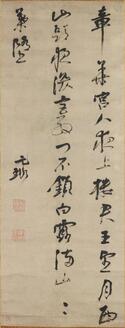 章華宮人夜上樓君王望月西
山頭夜深宮殿門不鎖白露滿山〻
葉墮